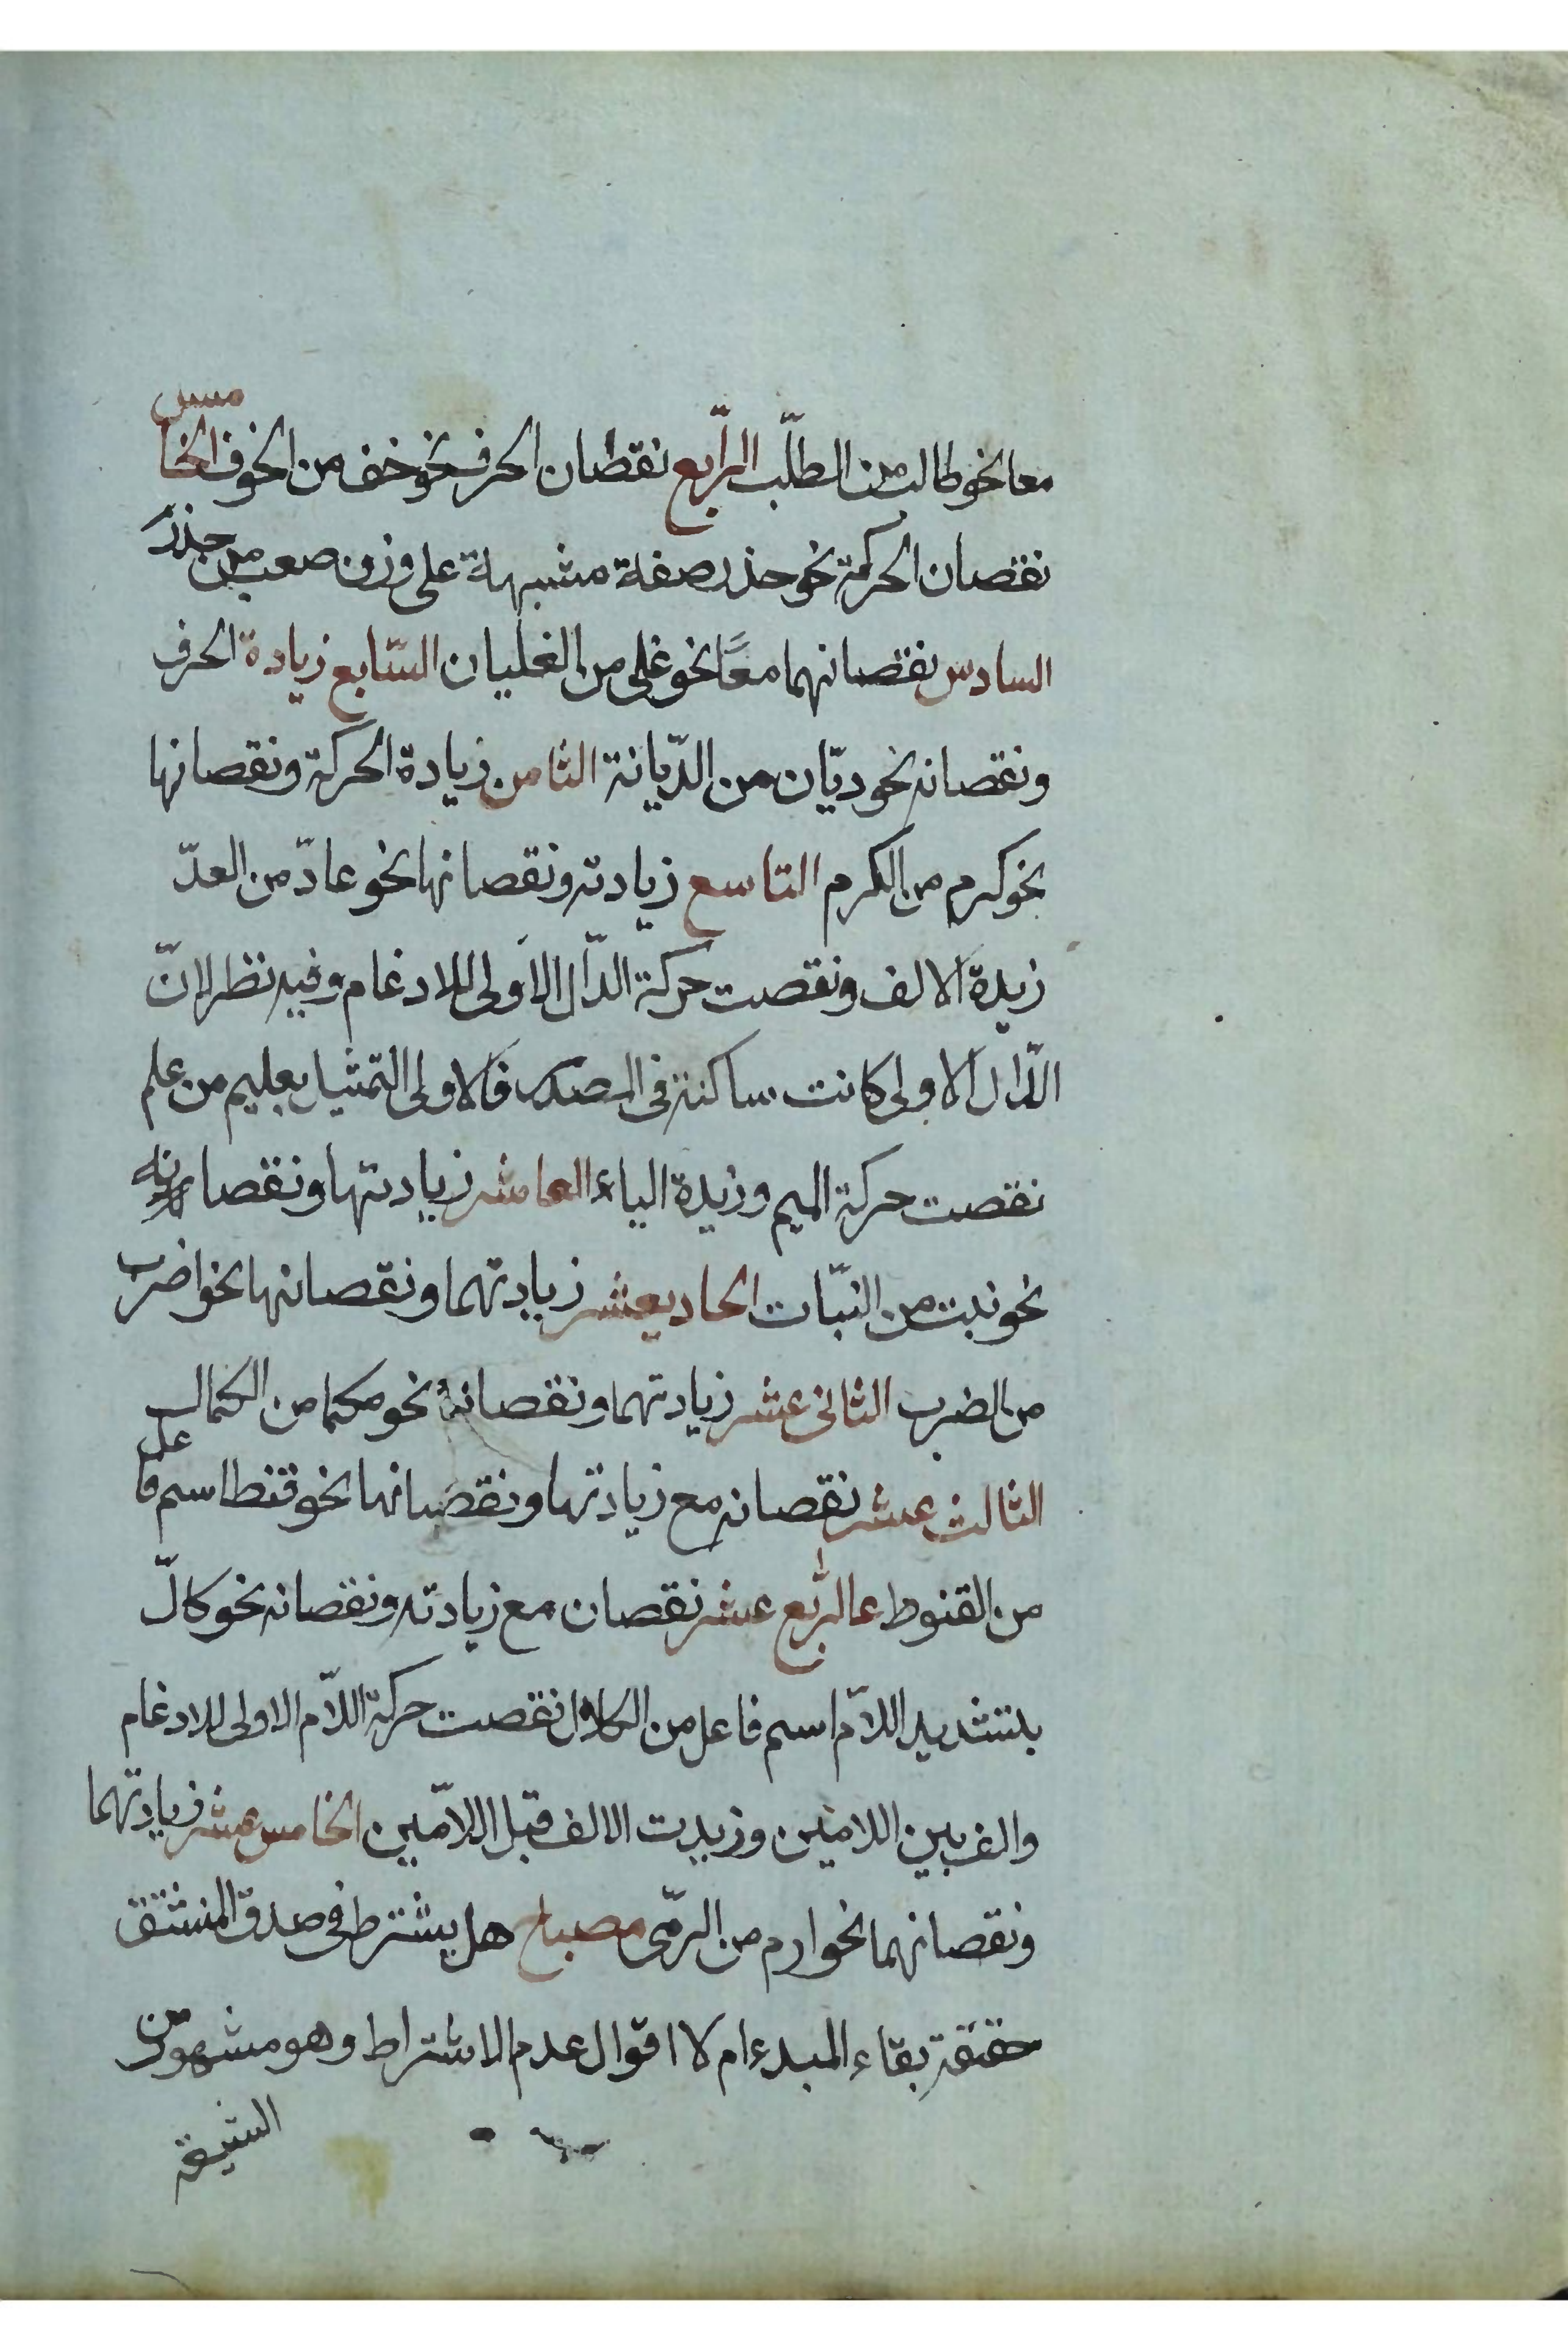 معا نحو طالب من الطلّب الرّابع نقصان الحرف نحو خف من الخوف الخامس
نقصان الحركة نحو حذر صفة مشبهة على وزن صعب من حذر
السادس نقصانهما معًا نحو غلى من الغليان السّابع زيادة الحرف
ونقصانه نحو ديّان من الدّيانة الثامن زيادة الحركة ونقصانها
نحو كرم من الكرم التاسع زيادته ونقصانها نحو عادّ من العدّ
زيدة الالف ونقصت حركة الدّال الاولى للادغام وفيه نظر لانّ
الدّال الاولى كانت ساكنة فى المصدر فالاولى التمثيل بعليم من علم
نقصت حركة الميم وزيدة الياء العاشر زيادتها ونقصانه
نحو نبت من النبّات الحاديعشر زيادتهما ونقصانها نحو اضرب
من الضرب الثانى عشر زيادتهما ونقصانه نحو مكما من الكمال
الثالث عشر نقصانه مع زيادتها ونقصانها نحو قنط اسم فاعل
من القنوط الرّابع عشر نقصان مع زيادته ونقصانه نحو كالّ
بتشديد اللاّم اسم فاعل من الكلال نقصت حركة اللاّم الاولى للادغام
والف بين اللامين وزيدت الالف قبل اللاّمين الخامس عشر زيادتهما
ونقصانهما نحو ارم من الرّمى مصباح هل يشترط فى صدق المشتق
حقيقة بقاء المبدء ام لا اقوال عدم الاشتراط وهو مشهور بين
الشيعة